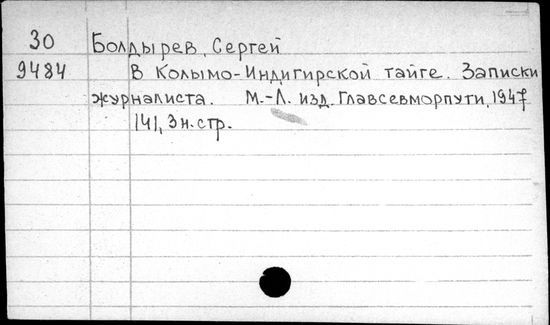 30 Болдырев, Сергей
9484 В Колымо-Индигирской тайге. Записки
журналиста. М.-Л. изд. Главсевморпути, 1947
141, 3 н. стр.